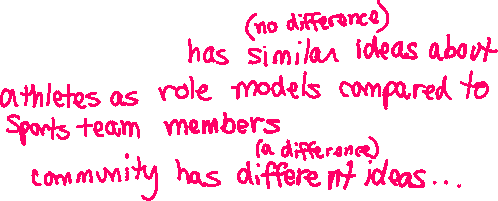 (no difference)
has similar ideas about
athletes as role models compared to
Sports team members
(a difference)
community has different ideas...